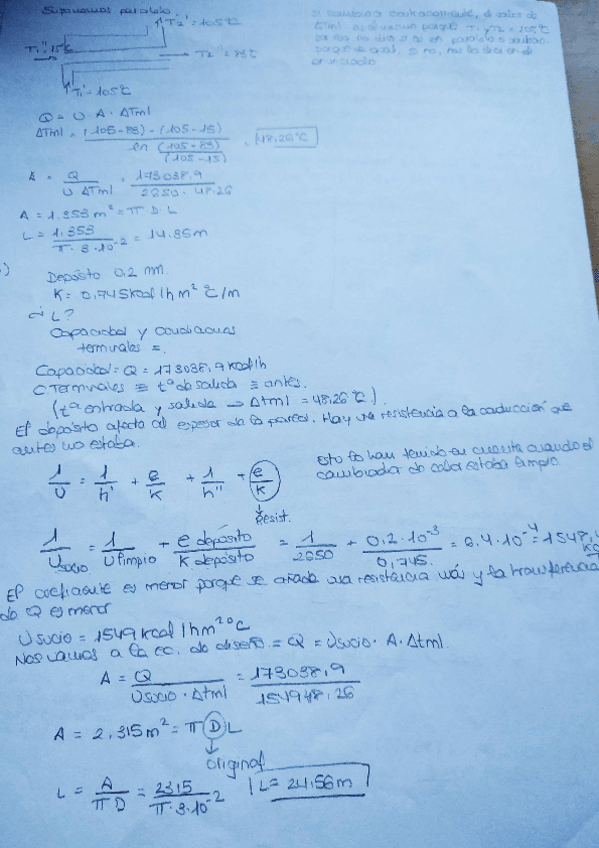 Suponemos paralelo.
T2' = 105ºC
T1'' 15ºC
T2'' = 83ºC
T1' = 105ºC
Q = U · A · ΔTml
ΔTml = (105-83) - (105-15) / ln (105-83)/(105-15) = 48,26ºC
A = Q / U ΔTml = 173038,9 / 2650 · 48,26
A = 1,353 m² = π D · L
L = 1,353 / π · 3 · 10⁻² = 14,35m
Depósito 0,2 mm.
K = 0,745 kcal / h m² ºC/m
¿L?
Capacidad y condiciones
terminales =.
Capacidad = Q = 173038,9 kcal/h
C. Terminales ≡ tª de salida ≡ antes.
(tª entrada y salida → Δtml = 48,26ºC).
El depósito afecta al espesor de la pared. Hay una resistencia a la conducción que
antes no estaba.
1/U = 1/h' + e/k + 1/h'' + e/k
Resist.
esto lo han tenido en cuenta cuando el
cambiador de calor estaba limpio
1/Usucio = 1/Ulimpio + e depósito / K depósito = 1/2650 + 0,2 · 10⁻³ / 0,745 = 6,4 · 10⁻⁴ = 1548,
El coeficiente es menor porque se añade una resistencia más y la transferencia
de Q es menor
Usucio = 1549 kcal / h m² ºC
Nos vamos a la ec. de diseño = Q = Usucio · A · Δtml.
A = Q / Usucio · Δtml = 173038,9 / 154948,26
A = 2,315 m² = π D L
original
L = A / π D = 2315 / π · 3 · 10⁻² L = 24,56 m